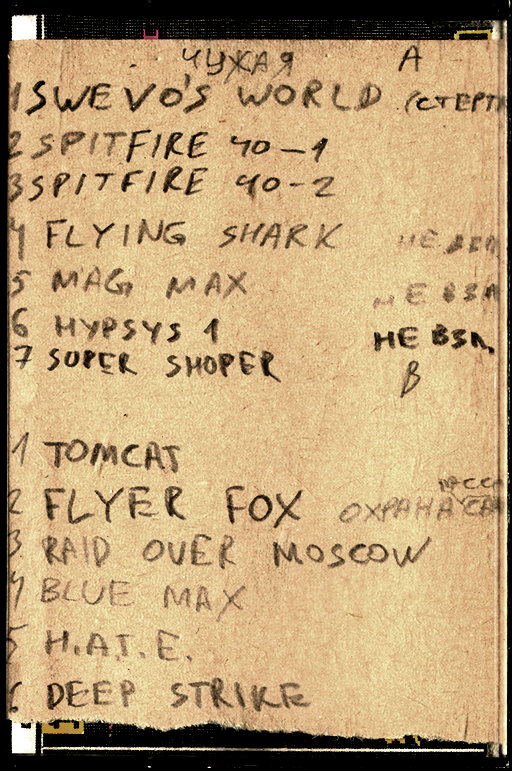 ЧУЖАЯ A
1 SWEVO'S WORLD (СТЕРТ
2 SPITFIRE 40-1
3 SPITFIRE 40-2
4 FLYING SHARK НЕ ВЗЛ
5 MAG MAX НЕ ВЗЛ
6 HYPSYS 1 НЕ ВЗЛ.
7 SUPER SHOPER
B
1 TOMCAT
2 FLYER FOX ОХРАНА
3 RAID OVER MOSCOW
4 BLUE MAX
5 H.A.T.E.
6 DEEP STRIKE